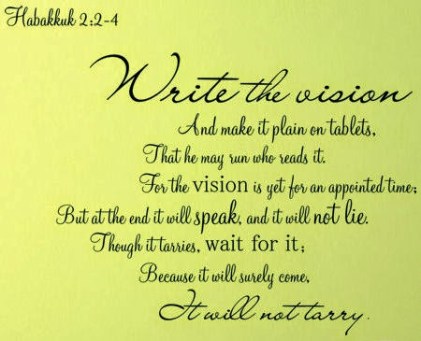 Habakkuk 2:2-4
Write the vision
And make it plain on tablets,
That he may run who reads it.
For the vision is yet for an appointed time;
But at the end it will speak, and it will not lie.
Though it tarries, wait for it;
Because it will surely come,
It will not tarry.